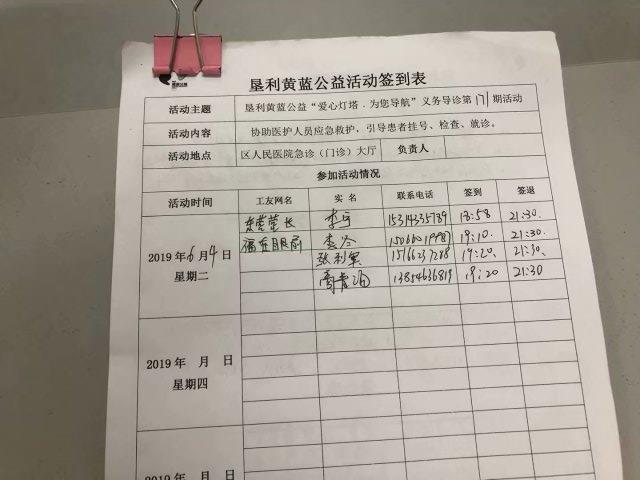 垦利黄蓝公益活动签到表
活动主题 垦利黄蓝公益“爱心灯塔．为您导航”义务导诊第171期活动
活动内容 协助医护人员应急救护，引导患者挂号、检查、就诊。
活动地点 区人民医院急诊（门诊）大厅 负责人
参加活动情况
活动时间 工友网名 实 名 联系电话 签到 签退
营长 李 15314335789 18:58 21:30.
2019年6月4日 福至眼前 李 19:10. 21:30.
星期二 张利军 15166237288 19:20. 21:30.
13854636819 19:20 21:30
2019年 月 日
星期四
2019年 月 日